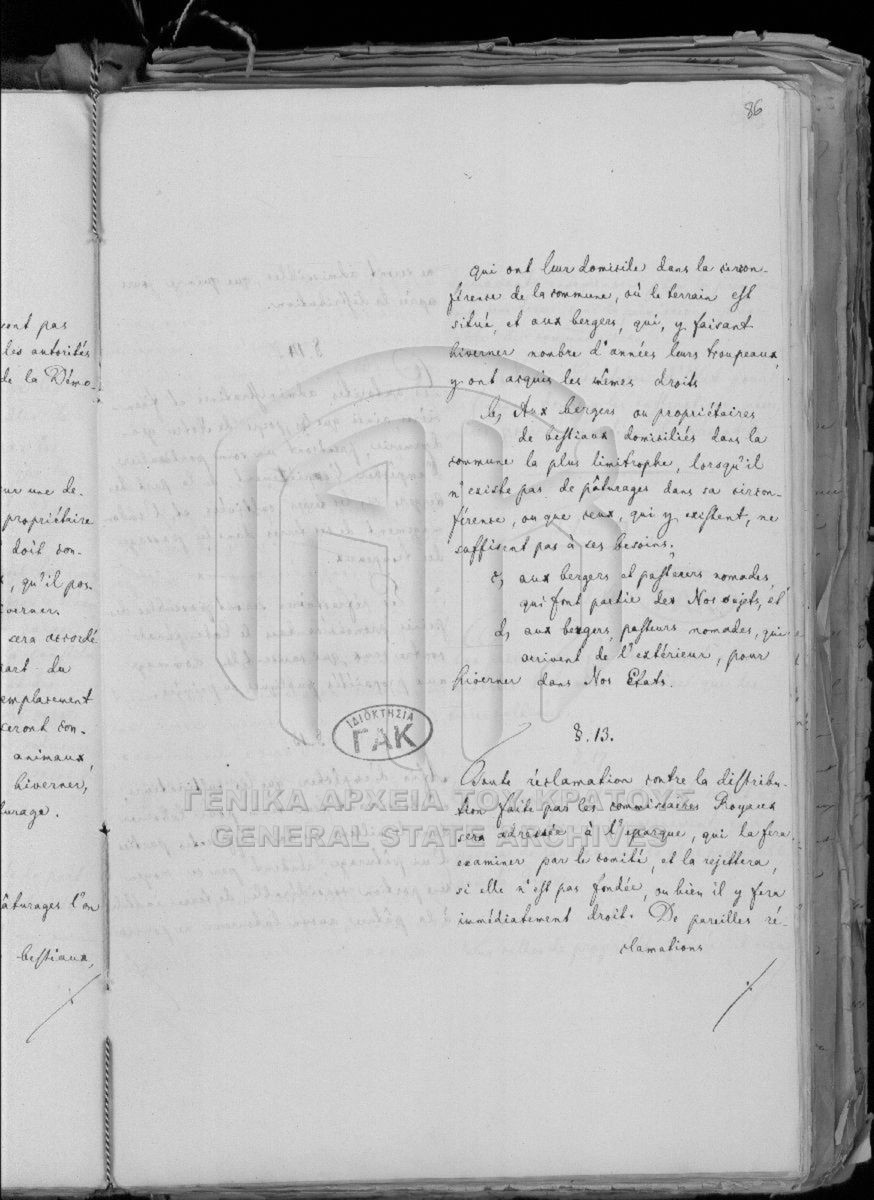 86
qui ont leur domicile dans la circon-
férence de la commune, où le terrain est
situé, et aux bergers, qui, y faisant
hiverner nombre d'années leurs troupeaux,
y ont acquis les mêmes droits
b, Aux bergers ou propriétaires
de bestiaux domiciliés dans la
commune la plus limitrophe, lorsqu'il
n'existe pas de pâturages dans sa circon-
férence, ou que ceux, qui y existent, ne
suffisent pas à ses besoins,
c, aux bergers et pasteurs nomades,
qui font partie des Nos sujets, et
d, aux bergers, pasteurs nomades, qui
arrivent de l'extérieur, pour
hiverner dans Nos Etats.
§. 13.
Toute réclamation contre la distribu-
tion faite par les commissaires Royaux
sera adressée à l'éparque, qui la fera
examiner par le comité, et la rejettera,
si elle n'est pas fondée, ou bien il y fera
immédiatement droit. De pareilles ré-
clamations
ont pas
les autorités
de la Démo-
ur une de-
propriétaire
doit con-
, qu'il pos-
hiverner
sera accordé
art du
emplacement
ceront con-
animaux,
hiverner,
turage.
âturages l'on
bestiaux,
ΙΔΙΟΚΤΗΣΙΑ
ΓΑΚ
ΓΕΝΙΚΑ ΑΡΧΕΙΑ ΤΟΥ ΚΡΑΤΟΥΣ
GENERAL STATE ARCHIVES